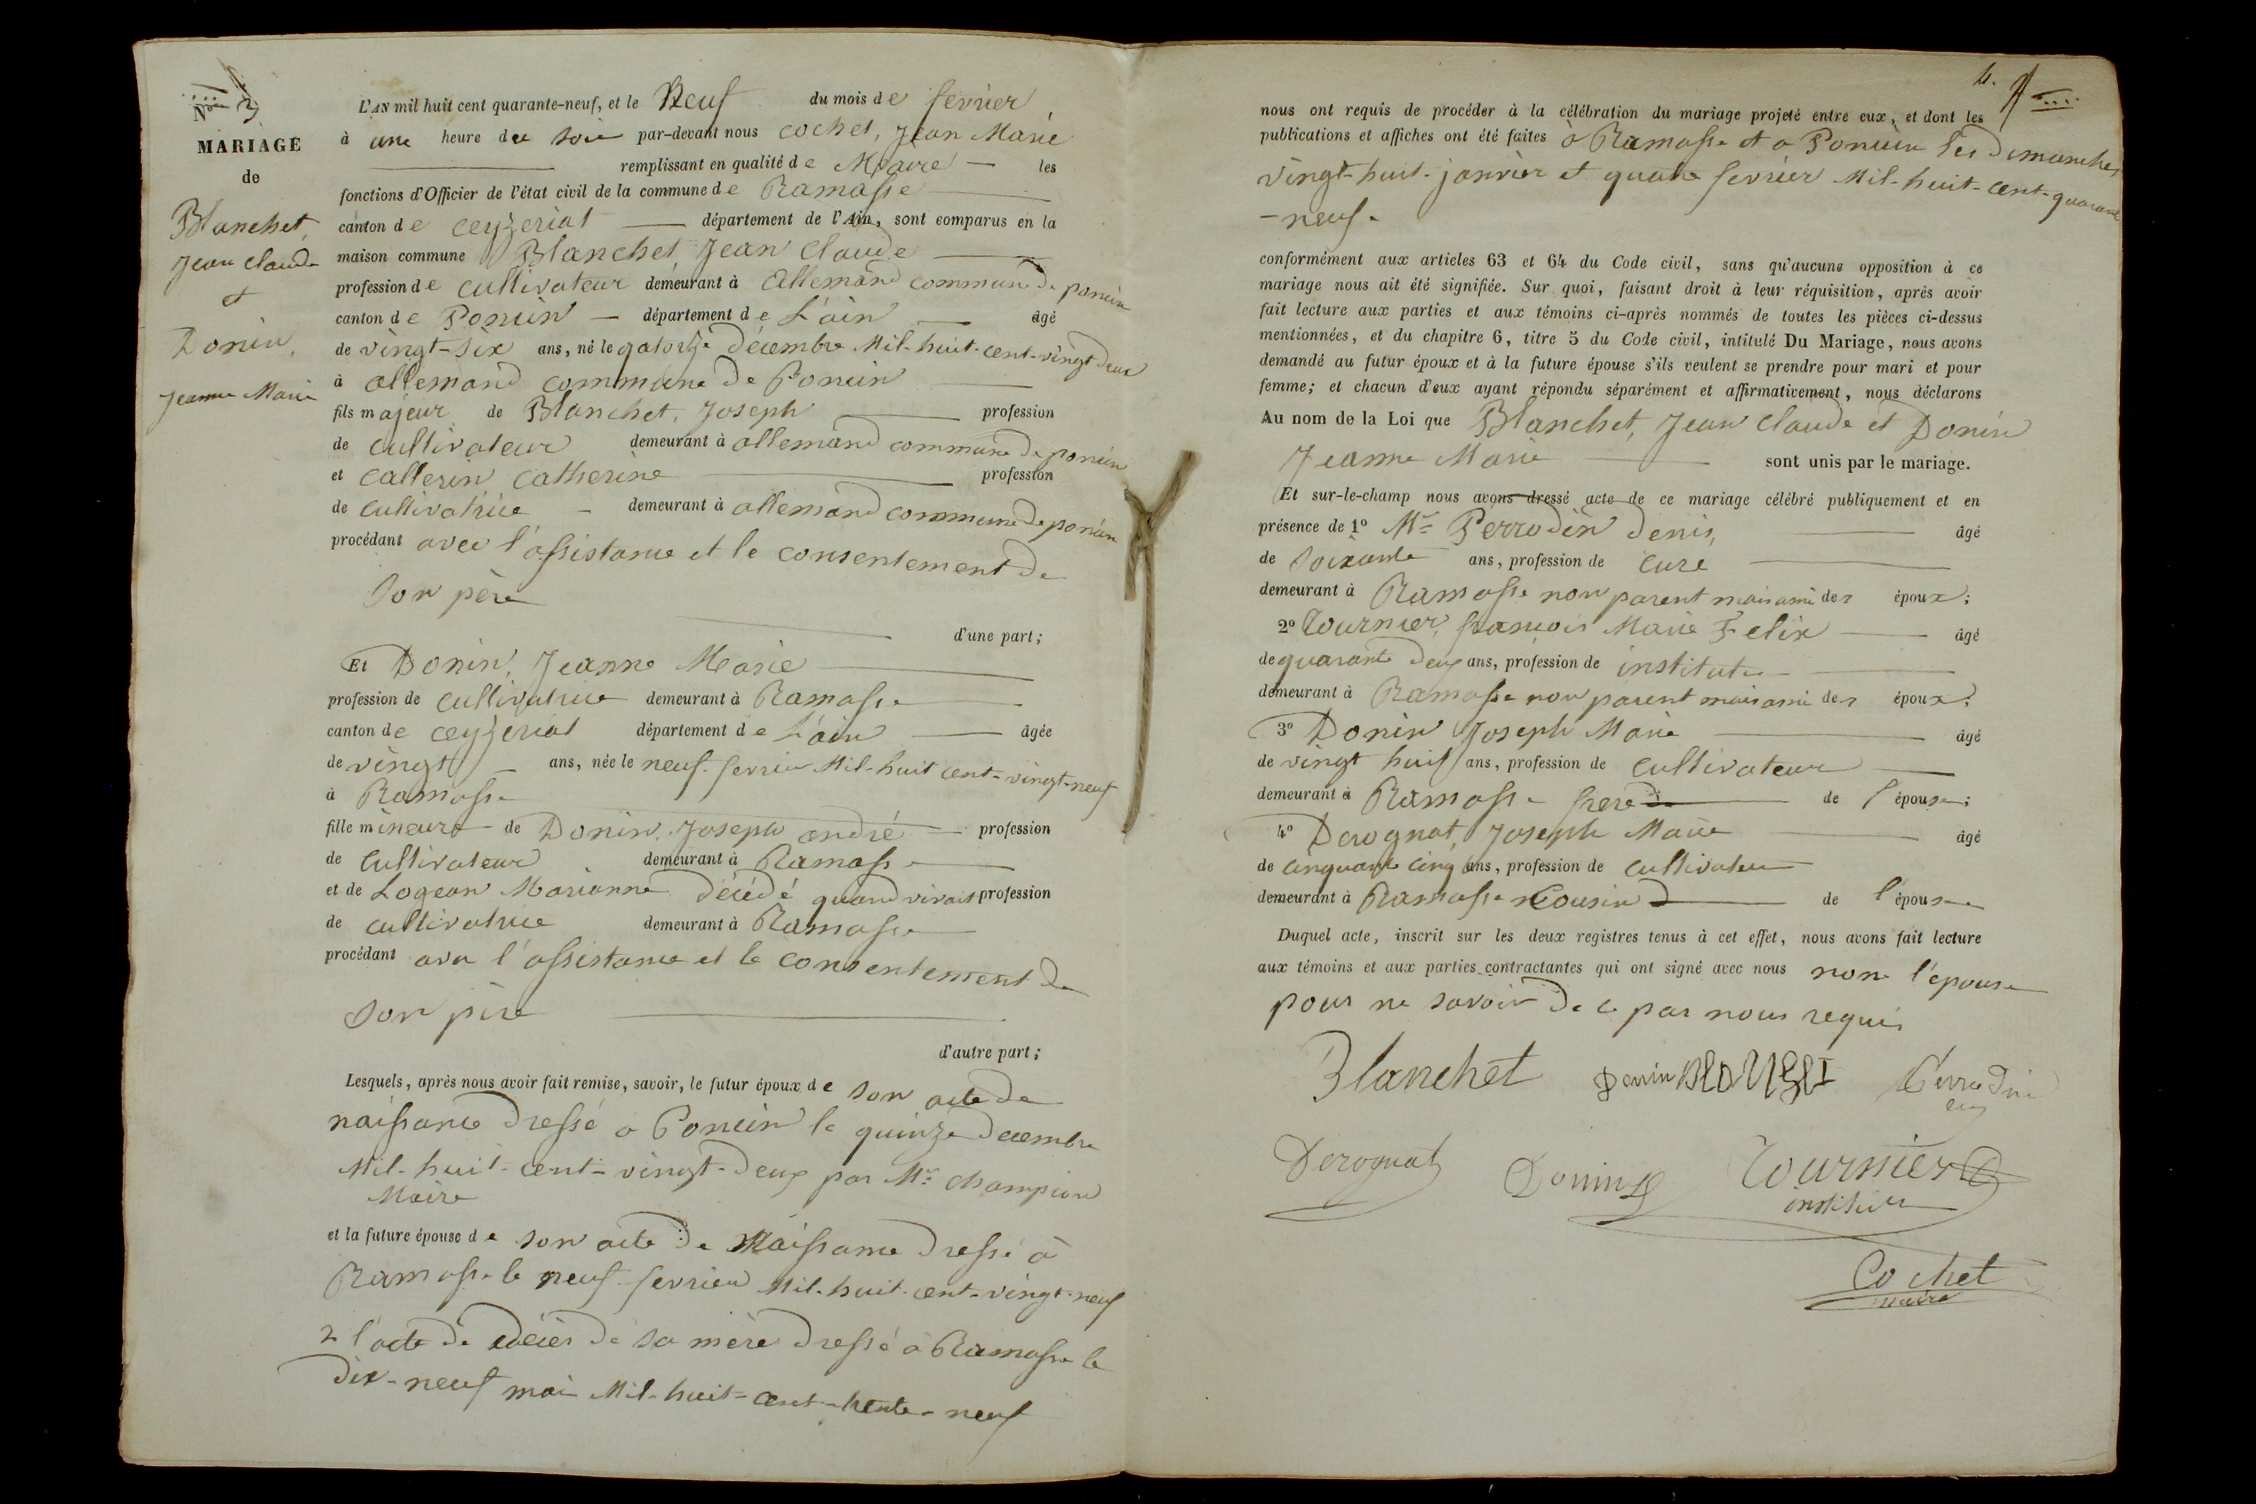 No 3
MARIAGE
de
Blanchet,
Jean Claude
et
Donin,
Jeanne Marie
L'AN mil huit cent quarante-neuf, et le Neuf du mois de fevrier
à une heure du soir par-devant nous cochet, Jean Marie
remplissant en qualité de Maire les
fonctions d'Officier de l'état civil de la commune de Ramasse
canton de ceyzeriat département de l'Ain, sont comparus en la
maison commune Blanchet, Jean Claude
profession de cultivateur demeurant à allemand commune de poncin
canton de Poncin département de L'ain âgé
de vingt-six ans, né le quatorze décembre Mil-huit-cent-vingt deux
à allemand commune de Poncin
fils majeur de Blanchet, Joseph profession
de cultivateur demeurant à allemand commune de poncin
et callerin catherine profession
de cultivatrice demeurant à allemand commune de poncin
procédant avec l'assistance et le consentement de
son père
d'une part;
Et Donin, Jeanne Marie
profession de cultivatrice demeurant à Ramasse
canton de ceyzeriat département de L'ain âgée
de vingt ans, née le neuf fevrier Mil-huit cent-vingt-neuf
à Ramasse
fille mineure de Donin, Joseph andré profession
de cultivateur demeurant à Ramasse
et de Logean Marianne décédé quand vivait profession
de cultivatrice demeurant à Ramasse
procédant avec l'assistance et le consentement de
son père
d'autre part;
Lesquels, après nous avoir fait remise, savoir, le futur époux de son acte de
naissance dressé à Poncin le quinze decembre
Mil-huit-cent-vingt-deux par Mr. champion
Maire
et la future épouse de son acte de Naissance dressé à
Ramasse le neuf fevrier Mil-huit-cent-vingt-neuf
2 l'acte de décès de sa mère dressé à Ramasse le
dix-neuf mai Mil-huit-cent-trente-neuf
4.
nous ont requis de procéder à la célébration du mariage projeté entre eux, et dont les
publications et affiches ont été faites à Ramasse et a Poncin les dimanches
vingt-huit-janvier et quatre fevrier Mil-huit-cent-quarante
-neuf-
conformément aux articles 63 et 64 du Code civil, sans qu'aucune opposition à ce
mariage nous ait été signifiée. Sur quoi, faisant droit à leur réquisition, après avoir
fait lecture aux parties et aux témoins ci-après nommés de toutes les pièces ci-dessus
mentionnées, et du chapitre 6, titre 5 du Code civil, intitulé Du Mariage, nous avons
demandé au futur époux et à la future épouse s'ils veulent se prendre pour mari et pour
femme; et chacun d'eux ayant répondu séparément et affirmativement, nous déclarons
Au nom de la Loi que Blanchet, Jean Claude et Donin
Jeanne Marie sont unis par le mariage.
Et sur-le-champ nous avons dressé acte de ce mariage célébré publiquement et en
présence de 1o Mr Perrodin denis, âgé
de soixante ans, profession de curé
demeurant à Ramasse non parent mais ami des époux;
2o Tournier, francois Marie Felix âgé
de quarante deux ans, profession de instituteur
demeurant à Ramasse non parent mais ami des époux;
3o Donin Joseph Marie âgé
de vingt huit ans, profession de cultivateur
demeurant à Ramasse frere de l'épouse;
4o Derognat, Joseph Marie âgé
de cinquante cinq ans, profession de cultivateur
demeurant à Ramasse Cousin de l'épouse
Duquel acte, inscrit sur les deux registres tenus à cet effet, nous avons fait lecture
aux témoins et aux parties contractantes qui ont signé avec nous non l'épouse
pour ne savoir de ce par nous requis
Blanchet Donin Perrodin
Derognat Donin Tournier
instituteur
Cochet
maire